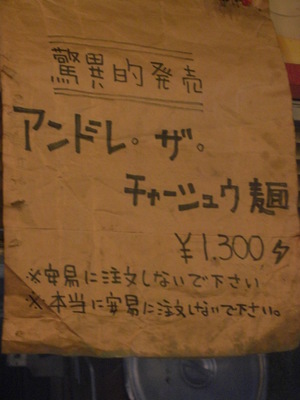 驚異的発売
アンドレ。ザ。
チャーシュウ麺
¥1.300
※安易に注文しないで下さい
※本当に安易に注文しないで下さい。